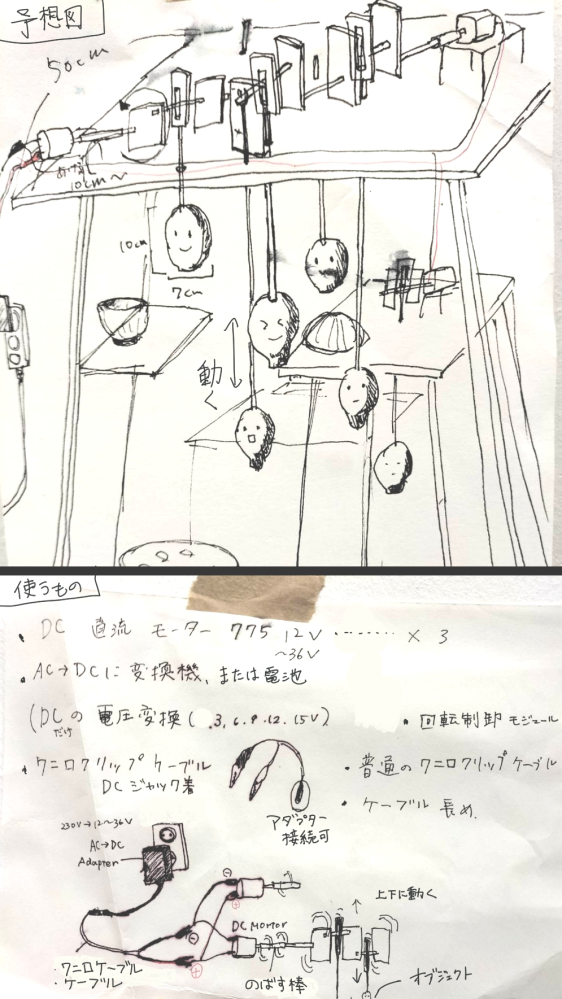 予想図
50cm
10cm〜
10cm
7cm
動く
使うもの
・DC 直流 モーター 775 12V ········ × 3
〜36V
・AC→DCに変換機、または電池
(DCの電圧変換(.3,6.9.12.15V)
だけ
・回転制御モジュール
・ワニロクリップケーブル
DCジャック着
・普通のワニロクリップケーブル
アダプター
接続可
・ケーブル 長め.
230V→12〜36V
AC→DC
Adapter
上下に動く
DC Mortor
・ワニロケーブル
・ケーブル
のばす棒
オブジェクト